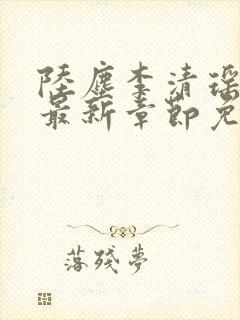 陸塵李清瑤
最新章節免
落殘夢